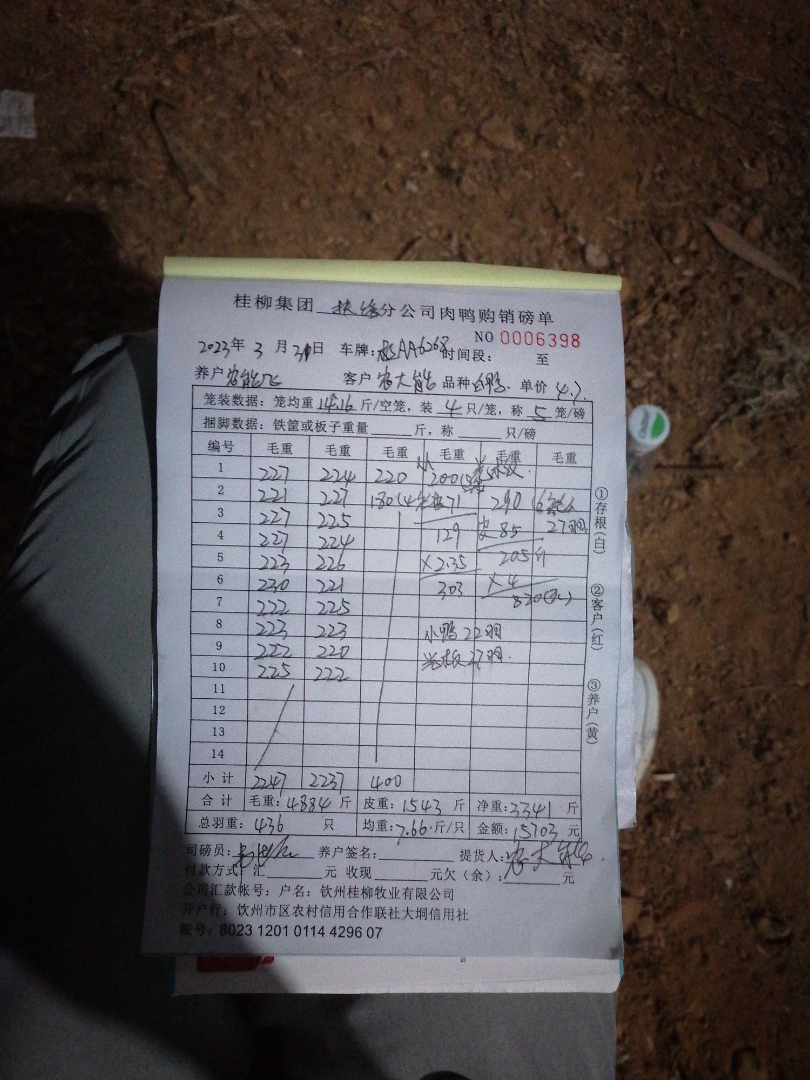 桂柳集团 扶绥分公司肉鸭购销磅单
NO 0006398
2023年 3 月 31日 车牌: AA6268 时间段: 至
养户 客户 农大能 品种 白鸭 单价 4.7
笼装数据: 笼均重 14.16 斤/空笼, 装 4 只/笼, 称 5 笼/磅
捆脚数据: 铁筐或板子重量 斤, 称 只/磅
编号 毛重 毛重 毛重 毛重 毛重 毛重
1 227 224 220 小 200
2 221 227 180 71 290
3 227 225 129 皮 85 27羽
4 227 224 ×2.35 205斤
5 223 226 303 ×4
6 230 221 820
7 222 225
8 223 223 小鸭22羽
9 222 220 27羽.
10 225 222
11
12
13
14
小计 2247 2237 400
合计 毛重: 4884 斤 皮重: 1543 斤 净重: 3341 斤
总羽重: 436 只 均重: 7.66 斤/只 金额: 15703 元
司磅员: 养户签名: 提货人: 农大能
付款方式: 汇 元 收现 元欠(余): 元
公司汇款帐号: 户名: 钦州桂柳牧业有限公司
开户行: 饮州市区农村信用合作联社大垌信用社
账号: 8023 1201 0114 4296 07
①存根(白)
②客户(红)
③养户(黄)